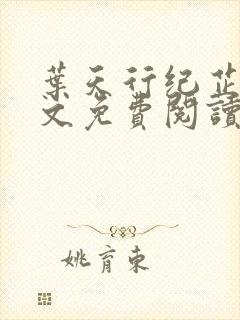 葉天行纪芷
文免費閱讀
姚育東